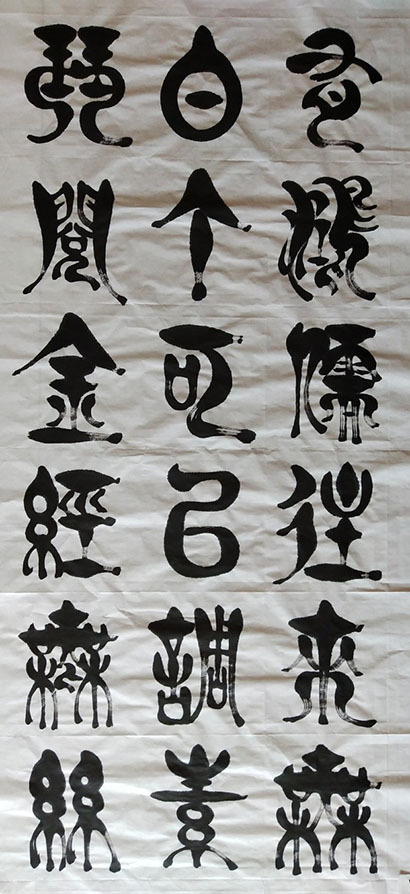 有鴻儒往來無
白丁可以調素
琴閱金經無絲